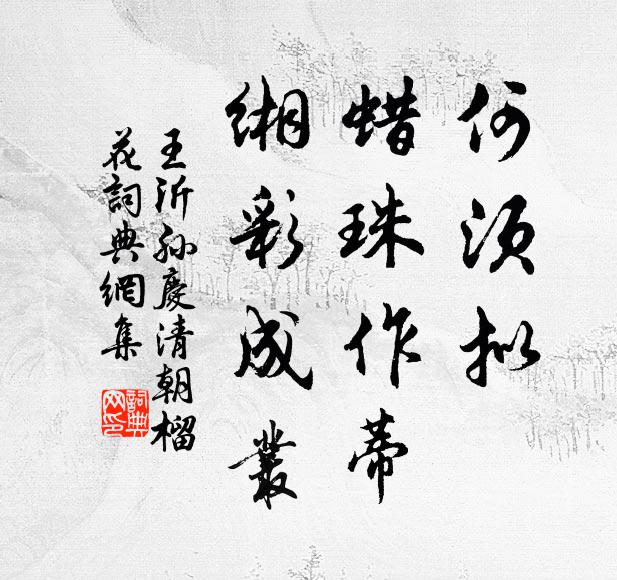 何须拟
蜡珠作蒂
缃彩成丛
王沂孙慶清朝榴
花詞典網集
詞典网印